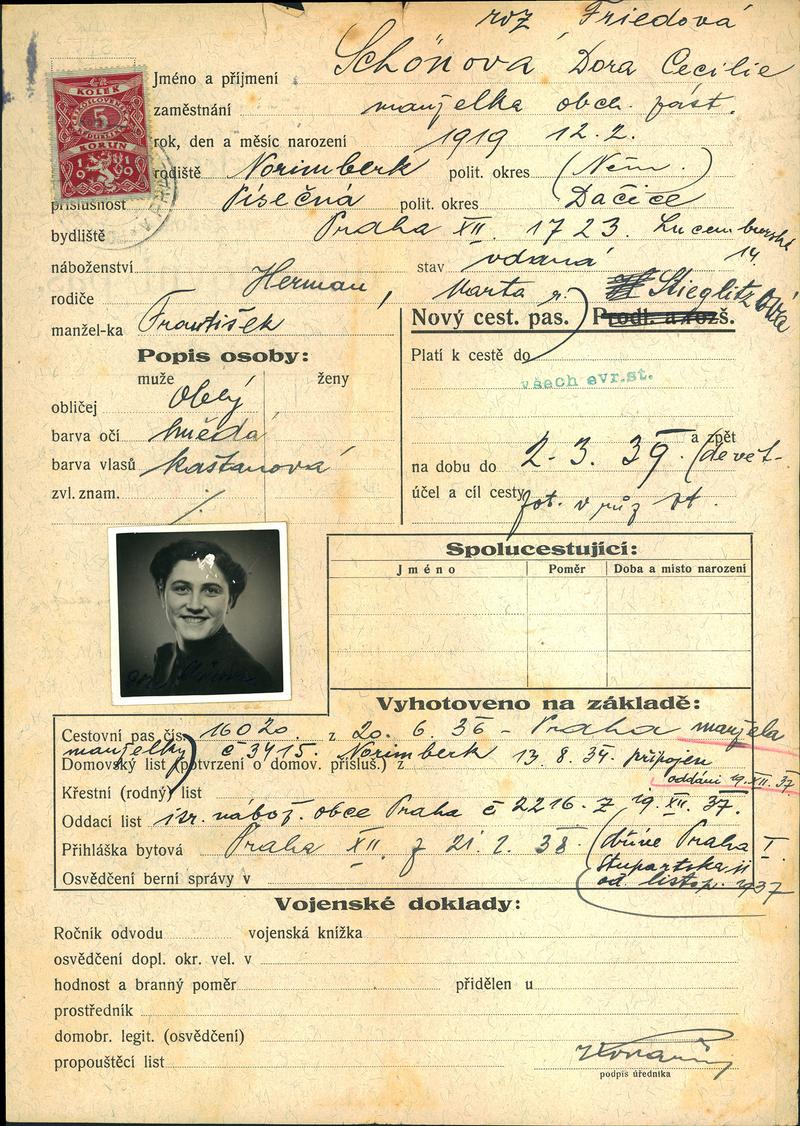 roz Friedová
Jméno a příjmení Schönová Dora Cecilie
KOLEK
5
KORUN
1919
zaměstnání manželka obch. zást.
rok, den a měsíc narození 1919 12. 2.
rodiště Norimberk polit. okres (Něm.)
příslušnost Písečná polit. okres Dačice
bydliště Praha XII. 1723. Lucemburská
14.
náboženství stav vdaná
rodiče Herman, Marta r. Stieglitzová
manžel-ka František
Nový cest. pas. Prodl. a rozš.
Popis osoby:
muže ženy
obličej oblý
barva očí hnědá
barva vlasů kaštanová
zvl. znam. /
Platí k cestě do
všech evr.st.
a zpět
na dobu do 2. 3. 39. (devět-
účel a cíl cesty v růz st.
Spolucestující:
Jméno Poměr Doba a místo narození
Vyhotoveno na základě:
Cestovní pas čís. 16020. z 20. 6. 36 - Praha manžela
manželky) č 3415. Norimberk 13. 8. 34. připojen
Domovský list (potvrzení o domov. přísluš.) z
oddáni 19. XII. 37
Křestní (rodný) list
Oddací list isr. nábož. obce Praha č 2216. z 19. XII. 37.
Přihláška bytová Praha XII z 21. 2. 38. (dříve Praha I.
Stupartská 11
od listop. 1937
Osvědčení berní správy v
Vojenské doklady:
Ročník odvodu vojenská knížka
osvědčení dopl. okr. vel. v
hodnost a branný poměr přidělen u
prostředník
domobr. legit. (osvědčení)
propouštěcí list
podpis úředníka